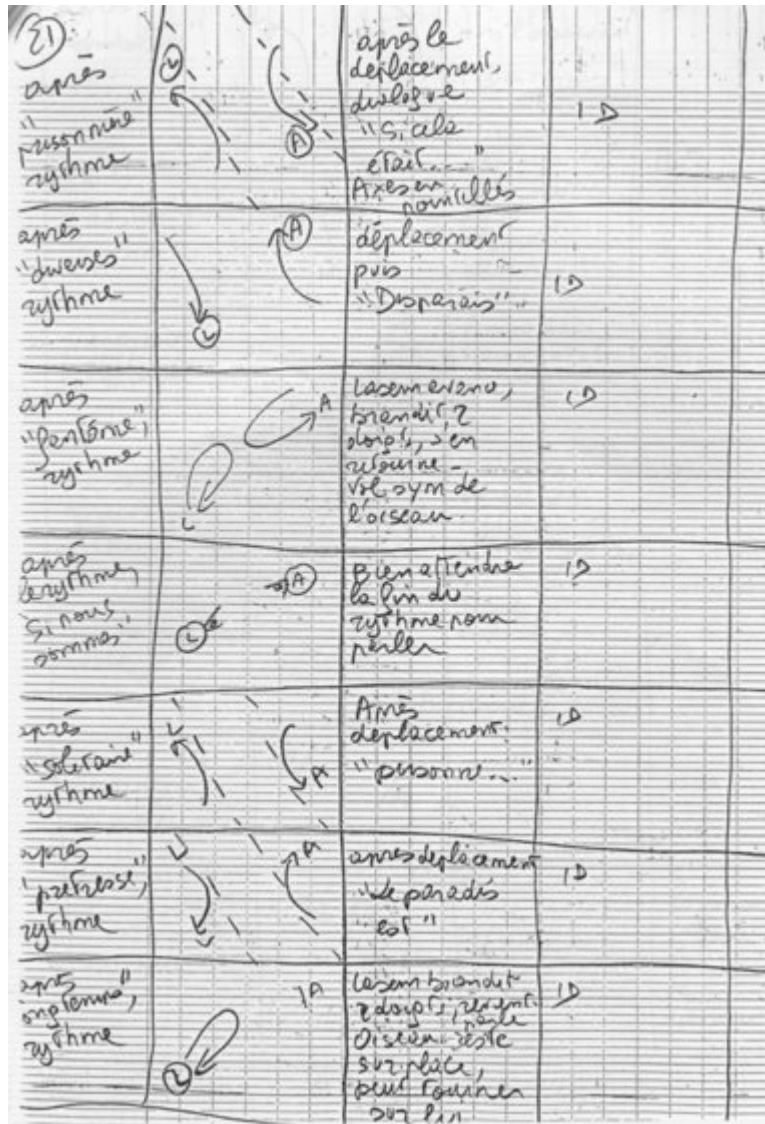 21
après
"prisonnière"
rythme
L
A
après le
déplacement,
dialogue
"Si cela
était...."
Axes en
pointillés
1D
après
"diverses"
rythme
A
L
déplacement
puis
"Disparais"
1D
après
"fantôme",
rythme
A
L
Lasem avance,
brandit 2
doigts, s'en
retourne -
Vol sym de
l'oiseau.
1D
après
le rythme,
"Si nous
sommes"
A
L
Bien attendre
la fin du
rythme pour
parler
1D
après
"solitaire"
rythme
L
A
Après
déplacement.
"personne...."
1D
après
"prêtresse",
rythme
L
A
L
après déplacement
"Le paradis
est"
1D
après
longtemps",
rythme
A
L
Lasem brandit
2 doigts, revient.
Oiseau reste
sur place,
peut tourner
sur lui
1D